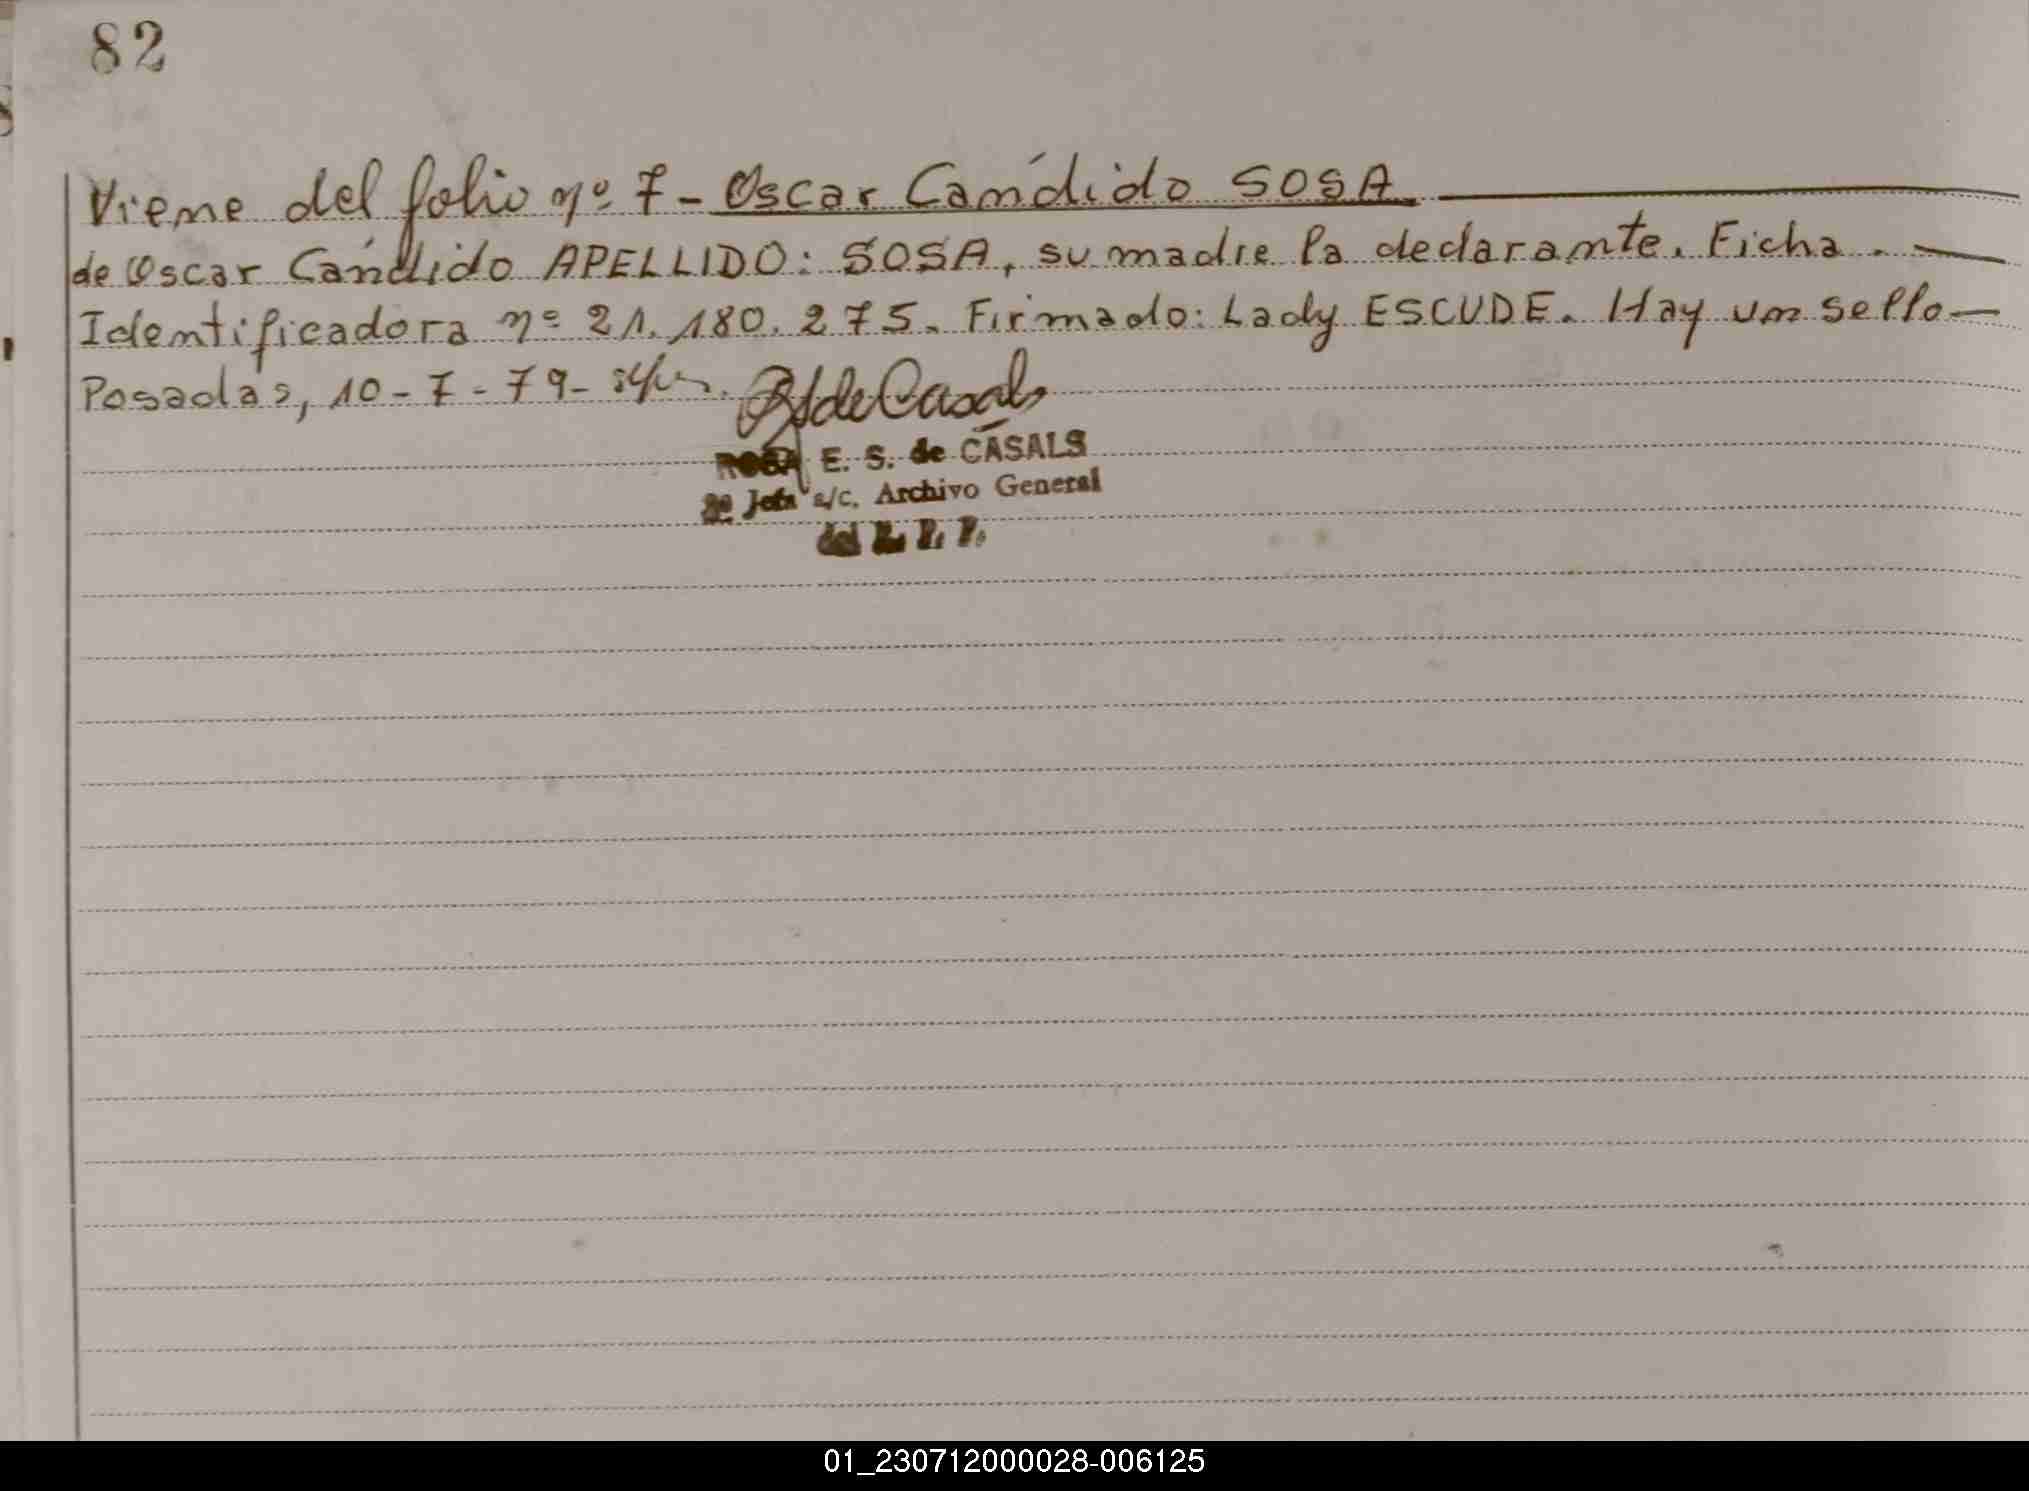 82
Viene del folio nº 7 - Oscar Cándido SOSA
de Oscar Cándido APELLIDO: SOSA, su madre la declarante. Ficha. —
Identificadora nº 21.180.275. Firmado: Lady ESCUDE. Hay un sello —
Posadas, 10-7-79-
de Casals
ROSA E. S. de CASALS
2º Jefa a/c. Archivo General
del R. P. P.
01_230712000028-006125